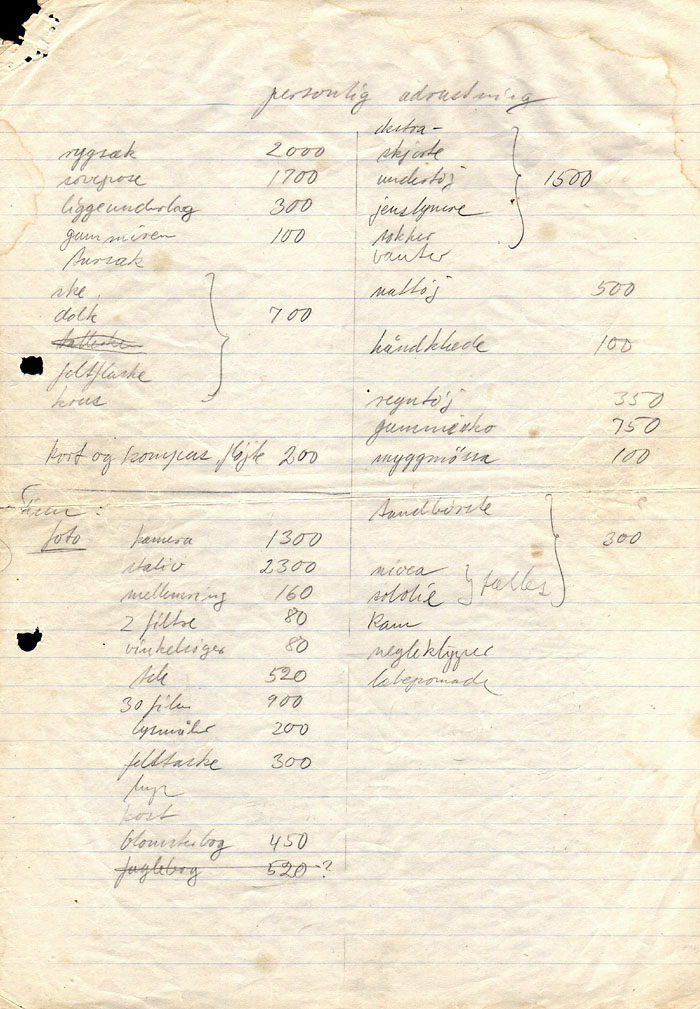 personlig udrustning
rygsæk 2000
sovepose 1700
liggeunderlag 300
gummiren 100
tursæk
ske
dolk 700
feltflaske
krus
kort og kompas, fløjte 200
foto kamera 1300
stativ 2300
mellemring 160
2 filtre 80
vinkelsøger 80
tele 520
30 film 900
lysmåler 200
felttaske 300
kost
blomsterbog 450
fuglebog 520 ?
ekstra-
skjorte
undertöj 1500
sokker
vanter
nattöj 500
håndklæde 100
regntöj 350
gummisko 750
myggmössa 100
tandbörste
300
nivea
sololie } fælles
kam
negleklipper
læbepomade